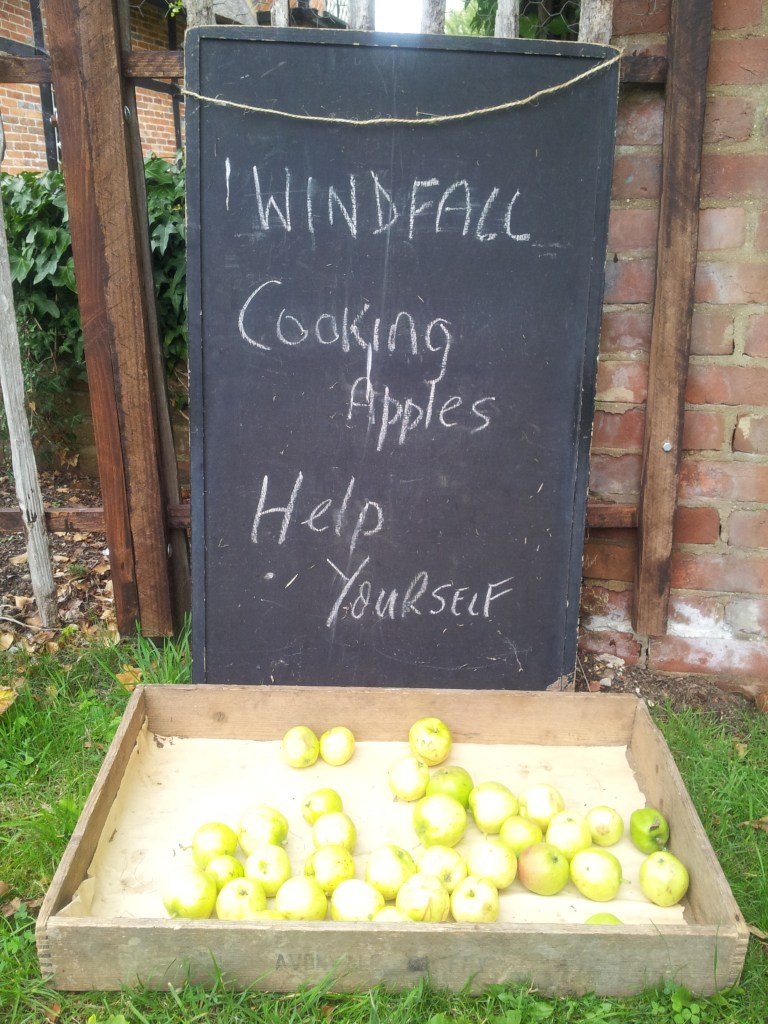 WINDFALL
Cooking
Apples
Help
YOURSELF